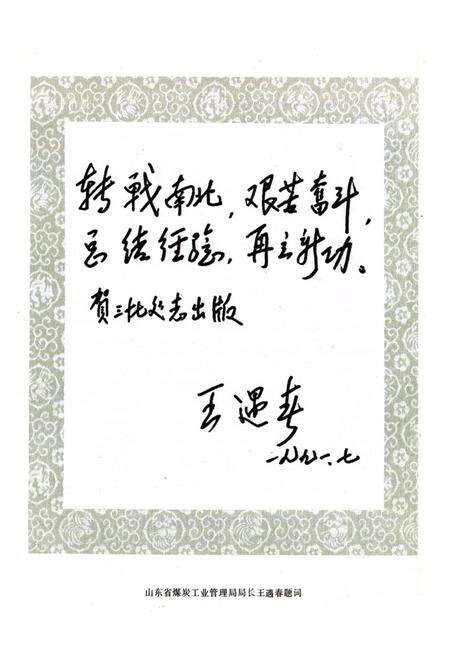 转战南北，艰苦奋斗，
总结经验，再立新功。
贺三十七处志出版
王遇春
一九九一、七
山东省煤炭工业管理局局长王遇春题词